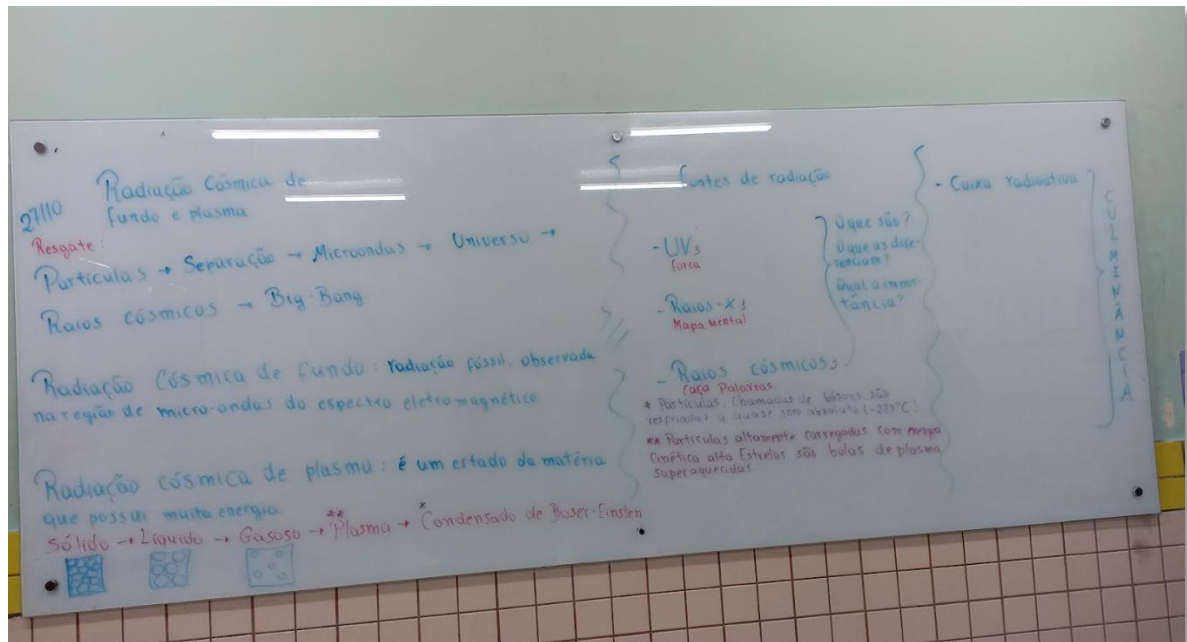 27/10
Radiação Cósmica de
fundo e plasma
Resgate:
Partículas → Separação → Microondas → Universo →
Raios cósmicos → Big-Bang
Radiação Cósmica de fundo: radiação fóssil, observada
na região de micro-ondas do espectro eletromagnético.
Radiação cósmica de plasma: é um estado da matéria
que possui muita energia.
Sólido → Líquido → Gasoso → **Plasma → *Condensado de Boser-Einsten
Fontes de radiação
- UV
Forca
- Raios-X
Mapa Mental
- Raios cósmicos
Caça Palavras
O que são?
O que as dife-
renciam?
Qual a impor-
tância?
* Partículas, chamadas de bósons, são
resfriadas a quase zero absoluto
** Partículas altamente carregadas com energia
Cinética alta Estrelas são bolas de plasma
superaquecidas.
- Caixa radioativa
CULMINÂNCIA